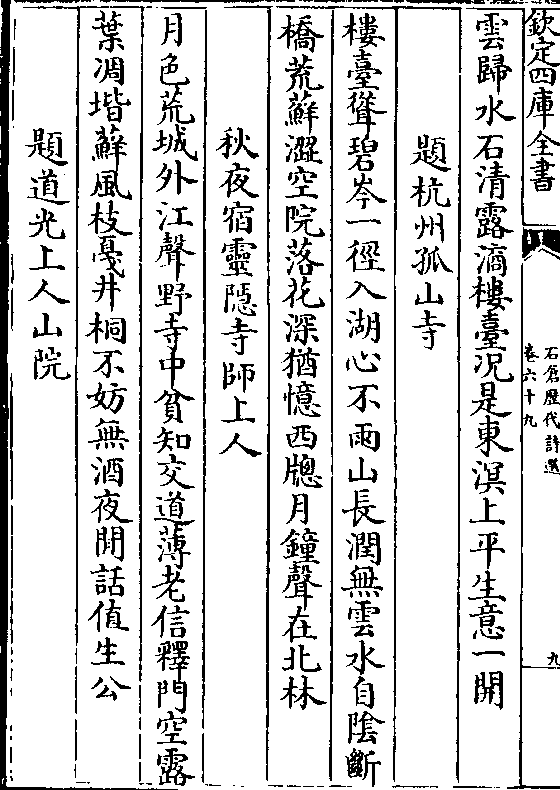 欽定四庫全書
石倉歷代詩選
卷六十九
九
雲歸水石清露滴樓臺況是東溟上平生意一開
題杭州孤山寺
樓臺聳碧岑一徑入湖心不雨山長潤無雲水自陰斷
橋荒蘚澀空院落花深猶憶西牕月鐘聲在北林
秋夜宿靈隱寺師上人
月色荒城外江聲野寺中貧知交道薄老信釋門空露
葉凋堦蘚風枝戞井桐不妨無酒夜閒話值生公
題道光上人山院